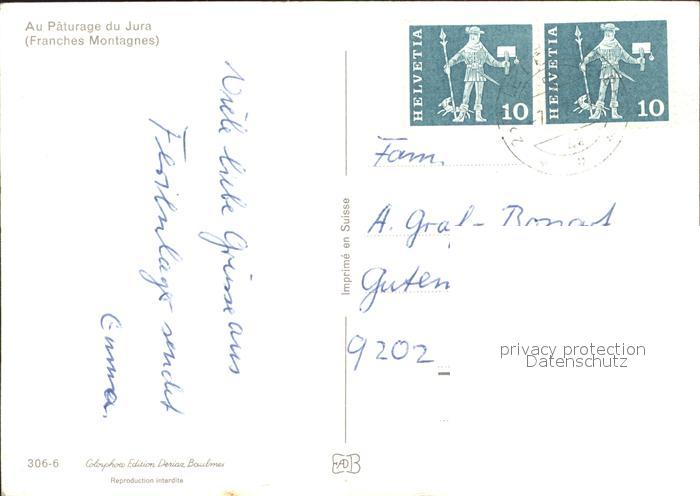 Au Pâturage du Jura
(Franches Montagnes)
HELVETIA 10
HELVETIA 10
Viele liebe Grüsse aus
sendet
Emma.
Fam.
A. Graf-
Guten
9202
Imprimé en Suisse
privacy protection
Datenschutz
306-6 Colorphoto Edition Deriaz Baulmes
Reproduction interdite